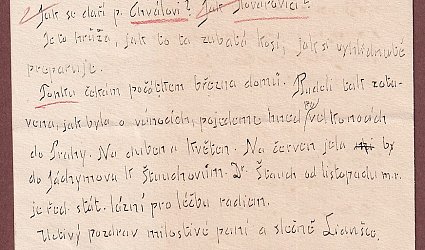 Jak se daří p. Chválovi? Jak Kovařovici?
Je to hrůža, jak to ta zubatá kosí, jak si vyhlédnuté
preparuje.
Tonku čekám počátkem března domů. Budeli tak zota-
vena, jak byla o vánocích, pojedeme hned po velkonocích
do Prahy. Na duben a květen. Na červen jela by
do Jáchymova k Štauchovim. Dr. Štauch od listopadu m.r.
je řed. stát. lázní pro léčbu radiem.
Uctivý pozdrav milostivé paní a slečně